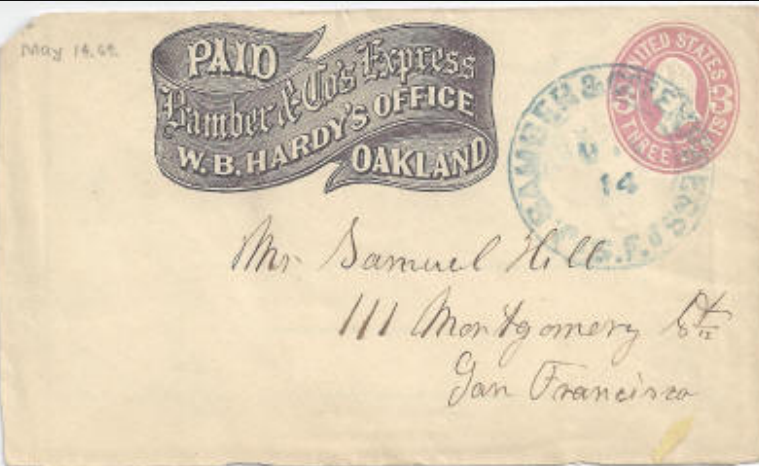 May 14.69.
PAID
Bamber & Co's Express
W. B. HARDY'S OFFICE
OAKLAND
UNITED STATES
3 3
THREE CENTS
BAMBER & EXPRESS
14
S.F.
Mr Samuel Hill
111 Montgomery St
San Francisco